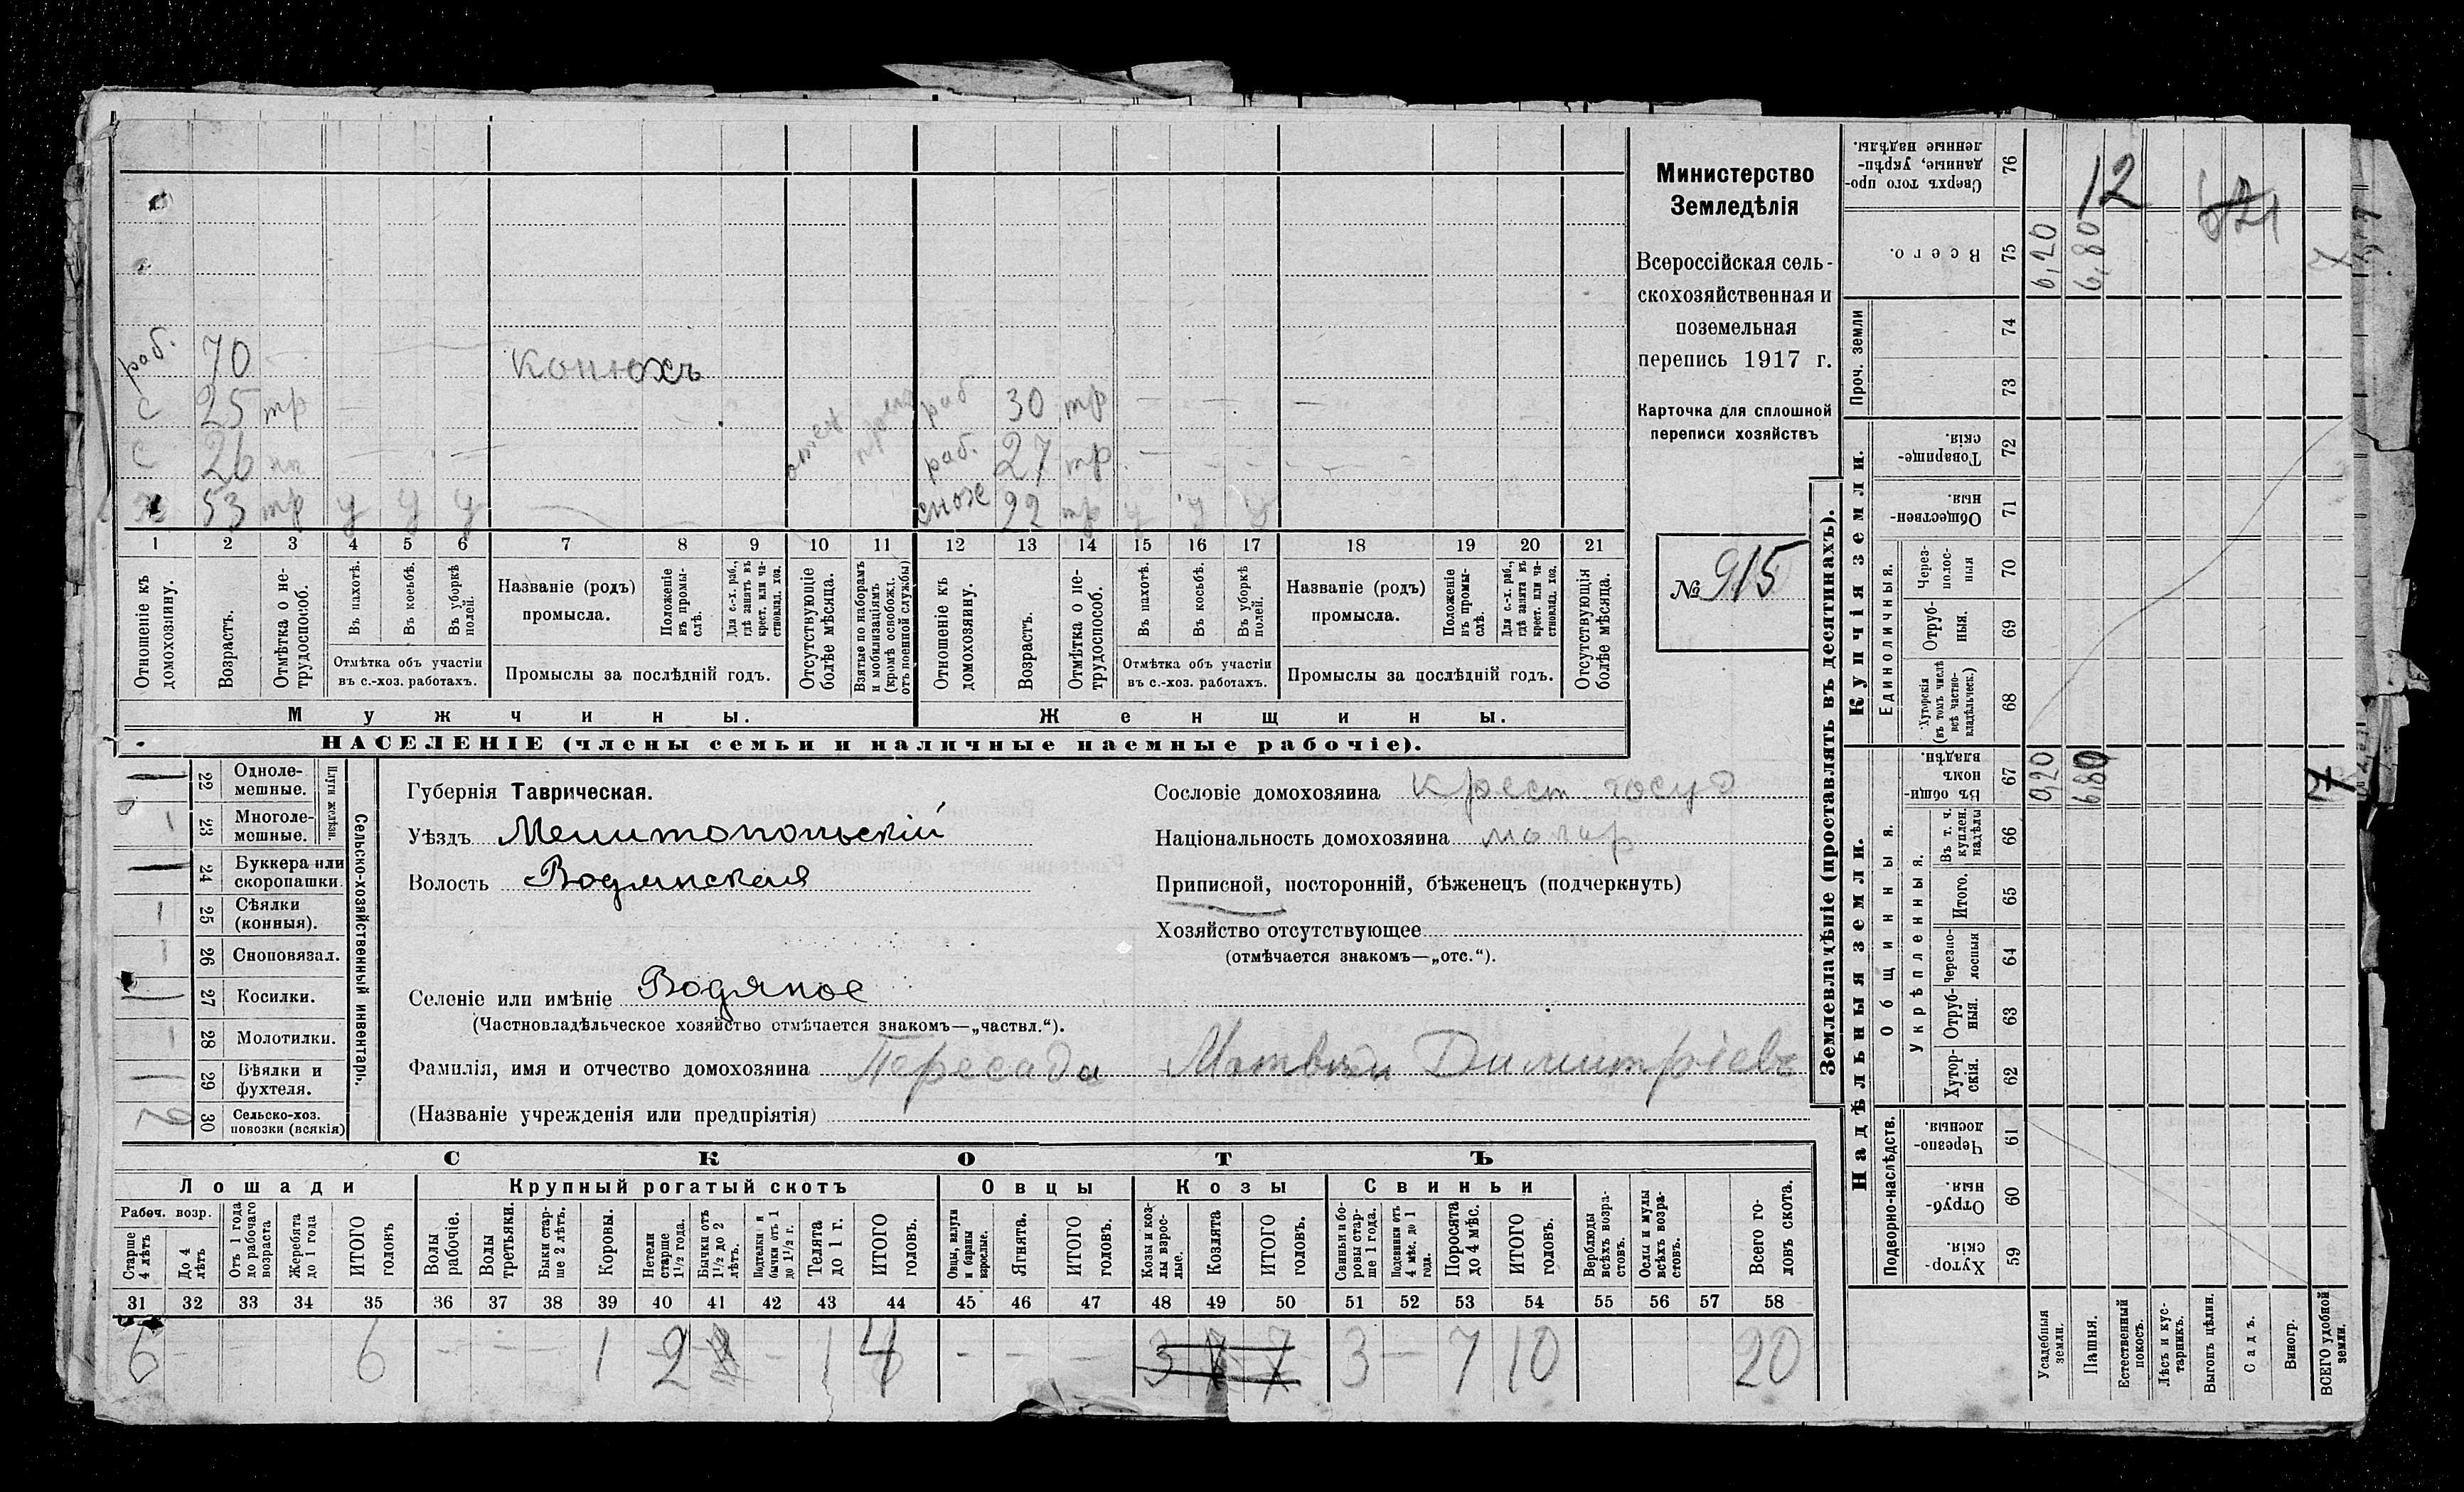 Министерство
Земледѣлія
Всероссійская сель-
скохозяйственная и
поземельная
перепись 1917 г.
Карточка для сплошной
переписи хозяйствъ
№ 915
раб. 70 Конюхъ
с 25 тр — раб 30 тр — — —
с 26 — — раб. 27 тр — —
х 53 тр у у у снох 22 тр у у у
1 2 3 4 5 6 7 8 9 10 11 12 13 14 15 16 17 18 19 20 21
Отношеніе къ домохозяину.
Возрастъ.
Отмѣтка о не-
трудоспособ.
Въ пахотѣ.
Въ косьбѣ.
Въ уборкѣ полей.
Отмѣтка объ участіи
въ с.-хоз. работахъ.
Названіе (родъ)
промысла.
Положеніе въ промы-
слѣ.
Для с.-х. раб., гдѣ занятъ въ крест. или ча-
стновлад. хоз.
Промыслы за послѣдній годъ.
Отсутствующіе болѣе мѣсяца.
Взятые по наборамъ и мобилизаціямъ (кромѣ освобожд. отъ военной службы)
Отношеніе къ домохозяину.
Возрастъ.
Отмѣтка о не-
трудоспособ.
Въ пахотѣ.
Въ косьбѣ.
Въ уборкѣ полей.
Отмѣтка объ участіи
въ с.-хоз. работахъ.
Названіе (родъ)
промысла.
Положеніе въ промы-
слѣ.
Для с.-х. раб., гдѣ занята въ крест. или ча-
стновлад. хоз.
Промыслы за послѣдній годъ.
Отсутствующія болѣе мѣсяца.
Мужчины. Женщины.
НАСЕЛЕНІЕ (члены семьи и наличные наемные рабочіе).
Сельско-хозяйственный инвентарь.
Плуги желѣзн.
1 22 Одноле-
мешные.
1 23 Многоле-
мешные.
1 24 Буккера или
скоропашки.
1 25 Сѣялки
(конныя).
1 26 Сноповязал.
1 27 Косилки.
1 28 Молотилки.
1 29 Вѣялки и
фухтеля.
30 Сельско-хоз.
повозки (всякія)
Губернія Таврическая.
Уѣздъ Мелитопольскій
Волость Водянская
Селеніе или имѣніе Водяное
(Частновладѣльческое хозяйство отмѣчается знакомъ—„частвл.“).
Фамилія, имя и отчество домохозяина Пересада Матвѣй Димитріевъ
(Названіе учрежденія или предпріятія)
Сословіе домохозяина крест. госуд
Національность домохозяина малор
Приписной, посторонній, бѣженецъ (подчеркнуть)
Хозяйство отсутствующее
(отмѣчается знакомъ—„отс.“).
СКОТЪ
Лошади Крупный рогатый скотъ Овцы Козы Свиньи
Рабоч. возр.
Старше 4 лѣтъ
До 4 лѣтъ
Отъ 1 года до рабочаго возраста
Жеребята до 1 года
ИТОГО головъ
Волы рабочіе.
Волы третьяки.
Быки стар-
ше 2 лѣтъ.
Коровы.
Нетели старше 1½ года.
Бычки отъ 1½ до 2 лѣтъ.
Подтелки и бычки отъ 1 до 1½ г.
Телята до 1 г.
ИТОГО головъ.
Овцы, валухи и бараны взрослые.
Ягнята.
ИТОГО головъ.
Козы и коз-
лы взрос-
лые.
Козлята
ИТОГО головъ.
Свиньи и бо-
ровы стар-
ше 1 года.
Подсвинки отъ 4 мѣс. до 1 года.
Поросята до 4 мѣс.
ИТОГО головъ.
Верблюды всѣхъ возра-
стовъ.
Ослы и мулы всѣхъ возра-
стовъ.
Всего го-
ловъ скота.
31 32 33 34 35 36 37 38 39 40 41 42 43 44 45 46 47 48 49 50 51 52 53 54 55 56 57 58
6 — — — 6 — — — 1 2 — 1 4 — — — 3 7 7 3 — 7 10 20
Землевладѣніе (проставлять въ десятинахъ).
Надѣльныя земли. Купчія земли. Проч. земли
Сверхъ того про-
данные, укрѣп-
ленные надѣлы. 76 12
Всего. 75 0,20 6,80
74
73
Товарище-
скія. 72
Обществен-
ныя. 71
Единоличныя.
Через-
полос-
ныя 70
Отруб-
ныя. 69
Хуторскія
(въ томъ числѣ
всѣ частно-
владѣльческ.) 68
Общинныя.
Въ общин-
номъ
владѣн. 67 0,20 6,80 7
Укрѣпленныя.
Въ т. ч.
куплен.
надѣлы 66
Итого. 65
Черезпо-
лосныя 64
Отруб-
ныя. 63
Хутор-
скія. 62
Подворно-наслѣдств.
Черезпо-
лосныя. 61
Отруб-
ныя. 60
Хутор-
скія. 59
Усадебныя земли.
Пашня.
Естественный покосъ.
Лѣсъ и кус-
тарникъ.
Выгонъ цѣлин.
Садъ.
Виногр.
ВСЕГО удобной земли.